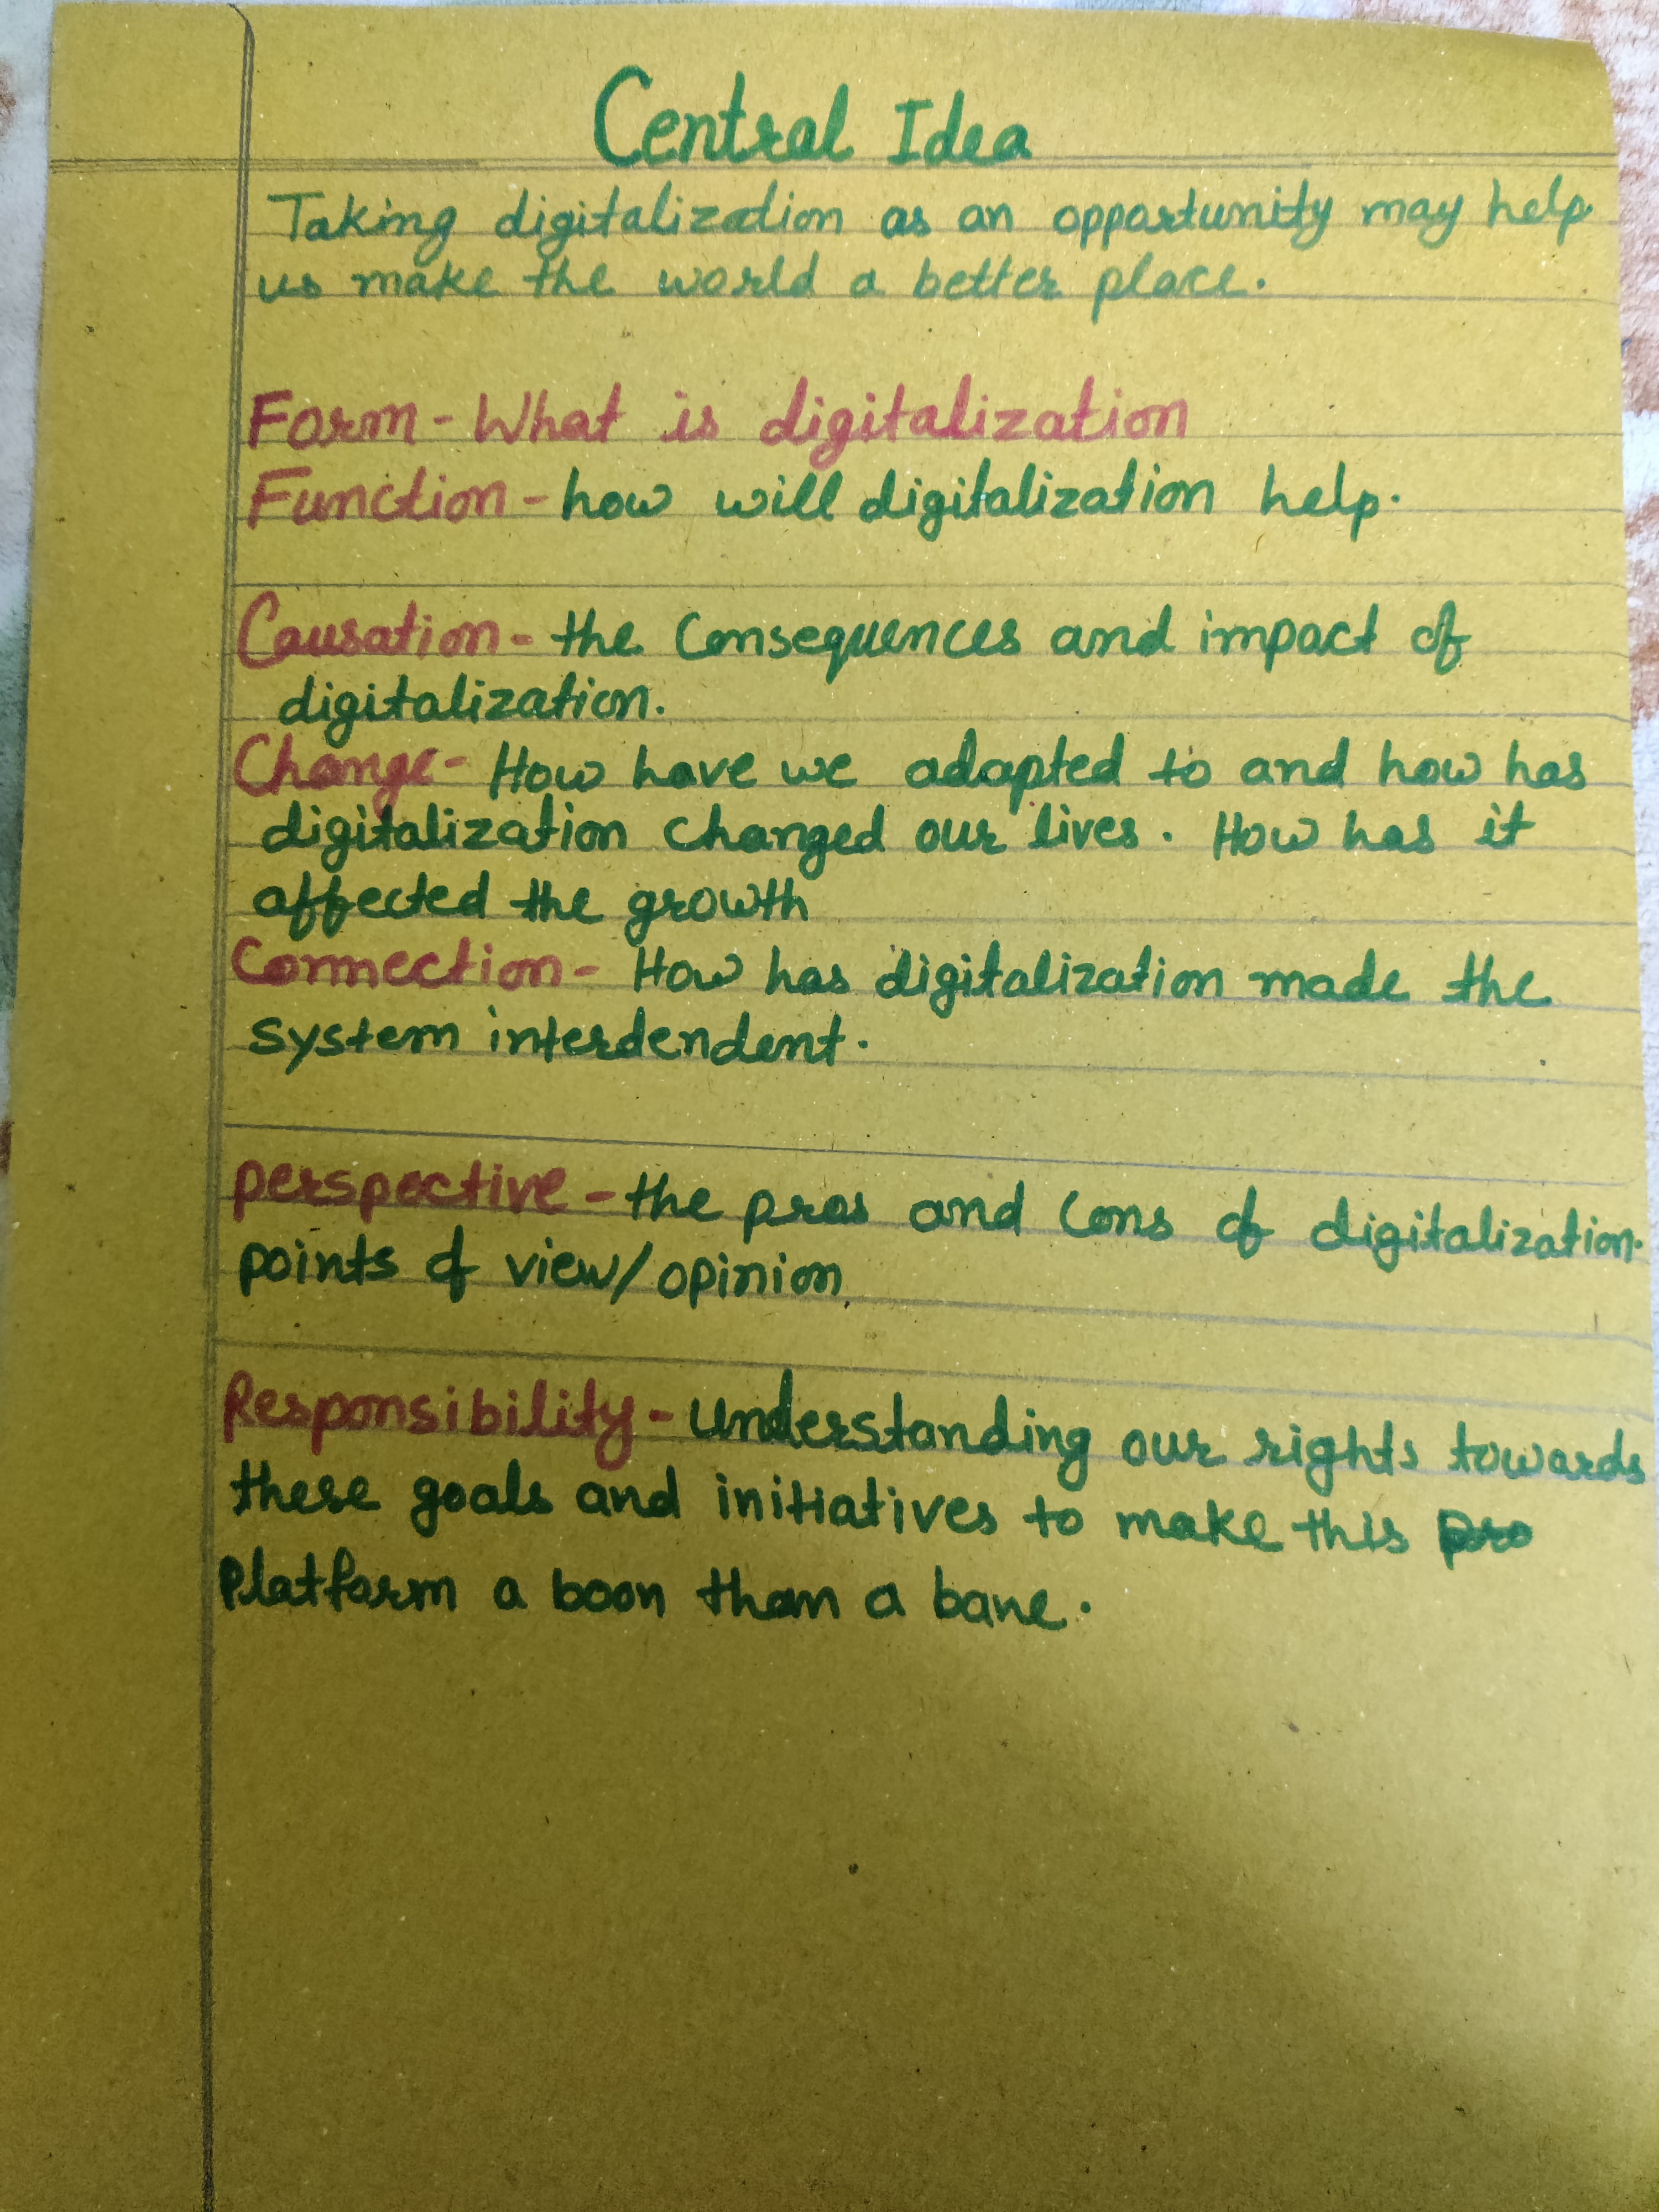 Central Idea
Taking digitalization as an opportunity may help
us make the world a better place.
Form - What is digitalization
Function - how will digitalization help.
Causation - the Consequences and impact of
digitalization.
Change - How have we adapted to and how has
digitalization changed our lives. How has it
affected the growth
Connection - How has digitalization made the
System interdendent.
perspective - the pros and Cons of digitalization.
points of view/opinion.
Responsibility - Understanding our rights towards
these goals and initiatives to make this pro
Platform a boon than a bane.